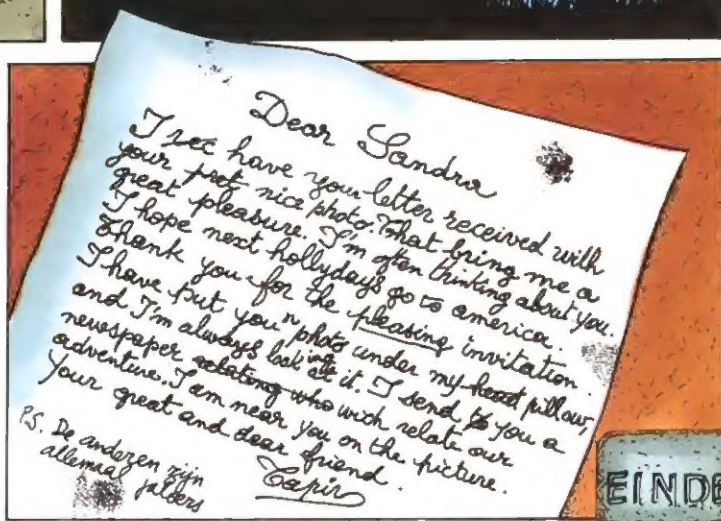 Dear Sandra
I rec have your letter received with
your pret nice photo. That bring me a
great pleasure. I'm often thinking about you.
I hope next hollydays go to america.
Thank you for the pleasing invitation.
I have put you r photo under my head pillow,
and I'm always looking at it. I send to you a
newspaper relating who wich relate our
adventure. I am near you on the picture.
Your great and dear friend.
Tapir
P.S. De anderen zijn
allemaal jaloers
EINDE